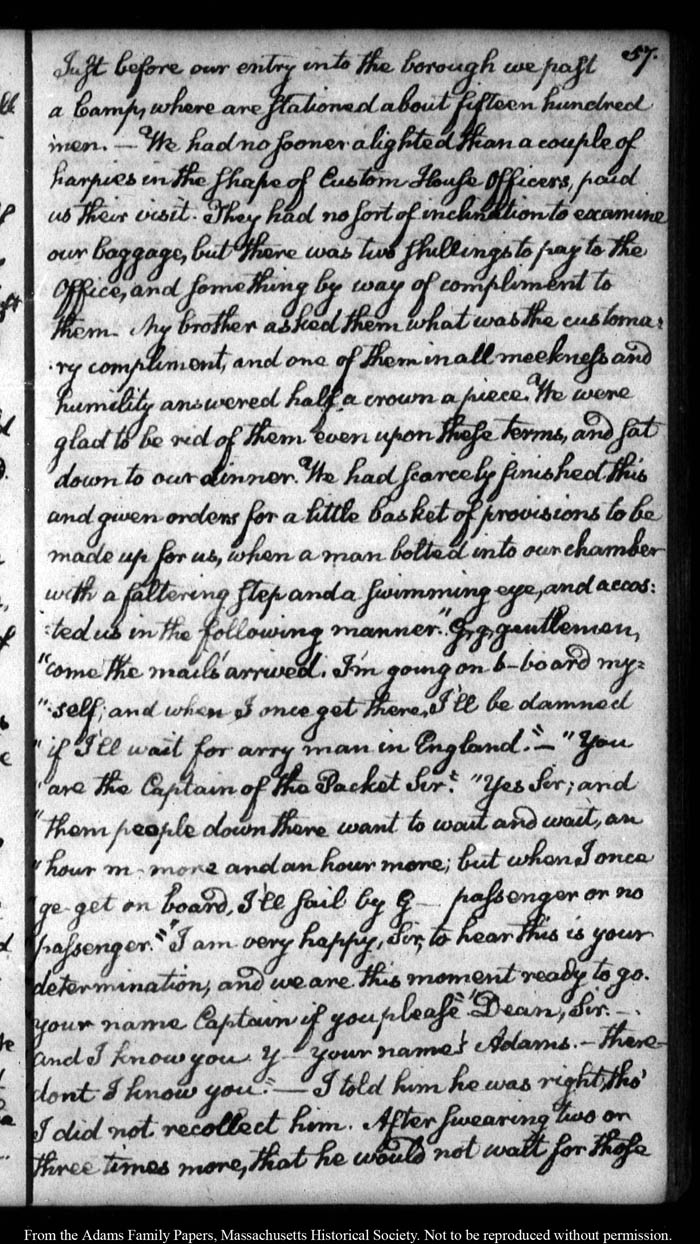 57.
Just before our entry into the borough we past
a Camp, where are stationed about fifteen hundred
men. — We had no sooner alighted than a couple of
harpies in the shape of Custom House Officers, paid
us their visit. They had no sort of inclination to examine
our baggage, but there was two shillings to pay to the
Office, and something by way of compliment to
them. My brother asked them what was the customa:
:ry compliment, and one of them in all meekness and
humility answered half a crown a piece. We were
glad to be rid of them even upon these terms, and sat
down to our dinner. We had scarcely finished this
and given orders for a little basket of provisions to be
made up for us, when a man bolted into our chamber
with a faltering step and a swimming eye, and accos:
:ted us in the following manner. "G, g, gentlemen,
"come the mails' arrived. I'm going on b-board my=
":self; and when I once get there, I'll be damned
"if I'll wait for arry man in England." — "You
"are the Captain of the Packet Sir": "Yes Sir; and
"them people down there want to wait and wait, an
"hour m- more and an hour more; but when I once
ge- get on board, I'll sail by G— passenger or no
passenger." "I am very happy, Sir, to hear this is your
determination, and we are this moment ready to go.
your name Captain if you please" "Dean, Sir. —.
and I know you. y— your name's Adams. — There
dont I know you." — I told him he was right, tho'
I did not recollect him. After swearing two or
three times more, that he would not wait for those
From the Adams Family Papers, Massachusetts Historical Society. Not to be reproduced without permission.